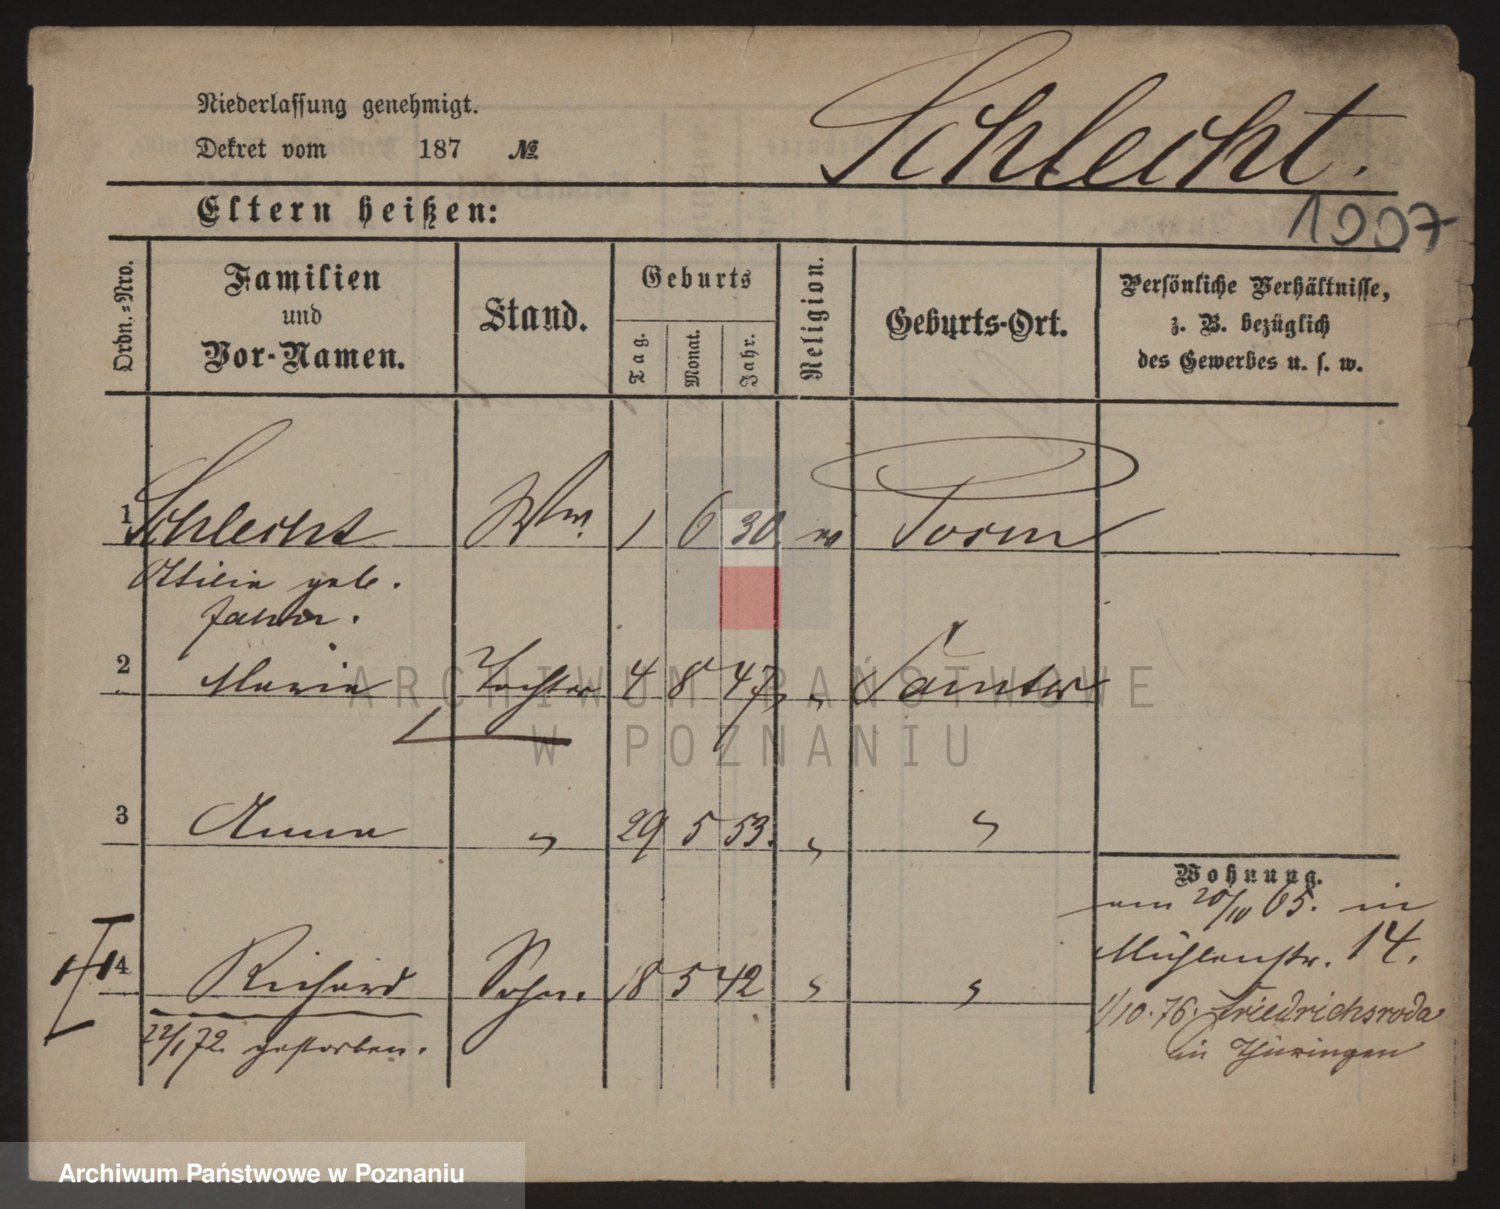 Niederlassung genehmigt.
Schlecht.
Dekret vom 187 №
Eltern heißen:
1007
Ordn.-Nro.
Familien
und
Vor-Namen.
Stand.
Geburts
Tag.
Monat.
Jahr.
Religion.
Geburts-Ort.
Persönliche Verhältnisse,
z. B. bezüglich
des Gewerbes u. s. w.
1 Schlecht Ww. 1 6 30. Posen
Otilie geb.
2 Marie Tochter 4 8 47 " Samter
ARCHIWUM PAŃSTWOWE
W POZNANIU
3 Anna " 29 5 53. " "
Wohnung.
am 20/10 65. in
4 Richard Sohn. 18 5 42 " "
Mühlenstr. 14.
22/1 72. gestorben.
1/10. 76. Friedrichsroda
in Thüringen
Archiwum Państwowe w Poznaniu